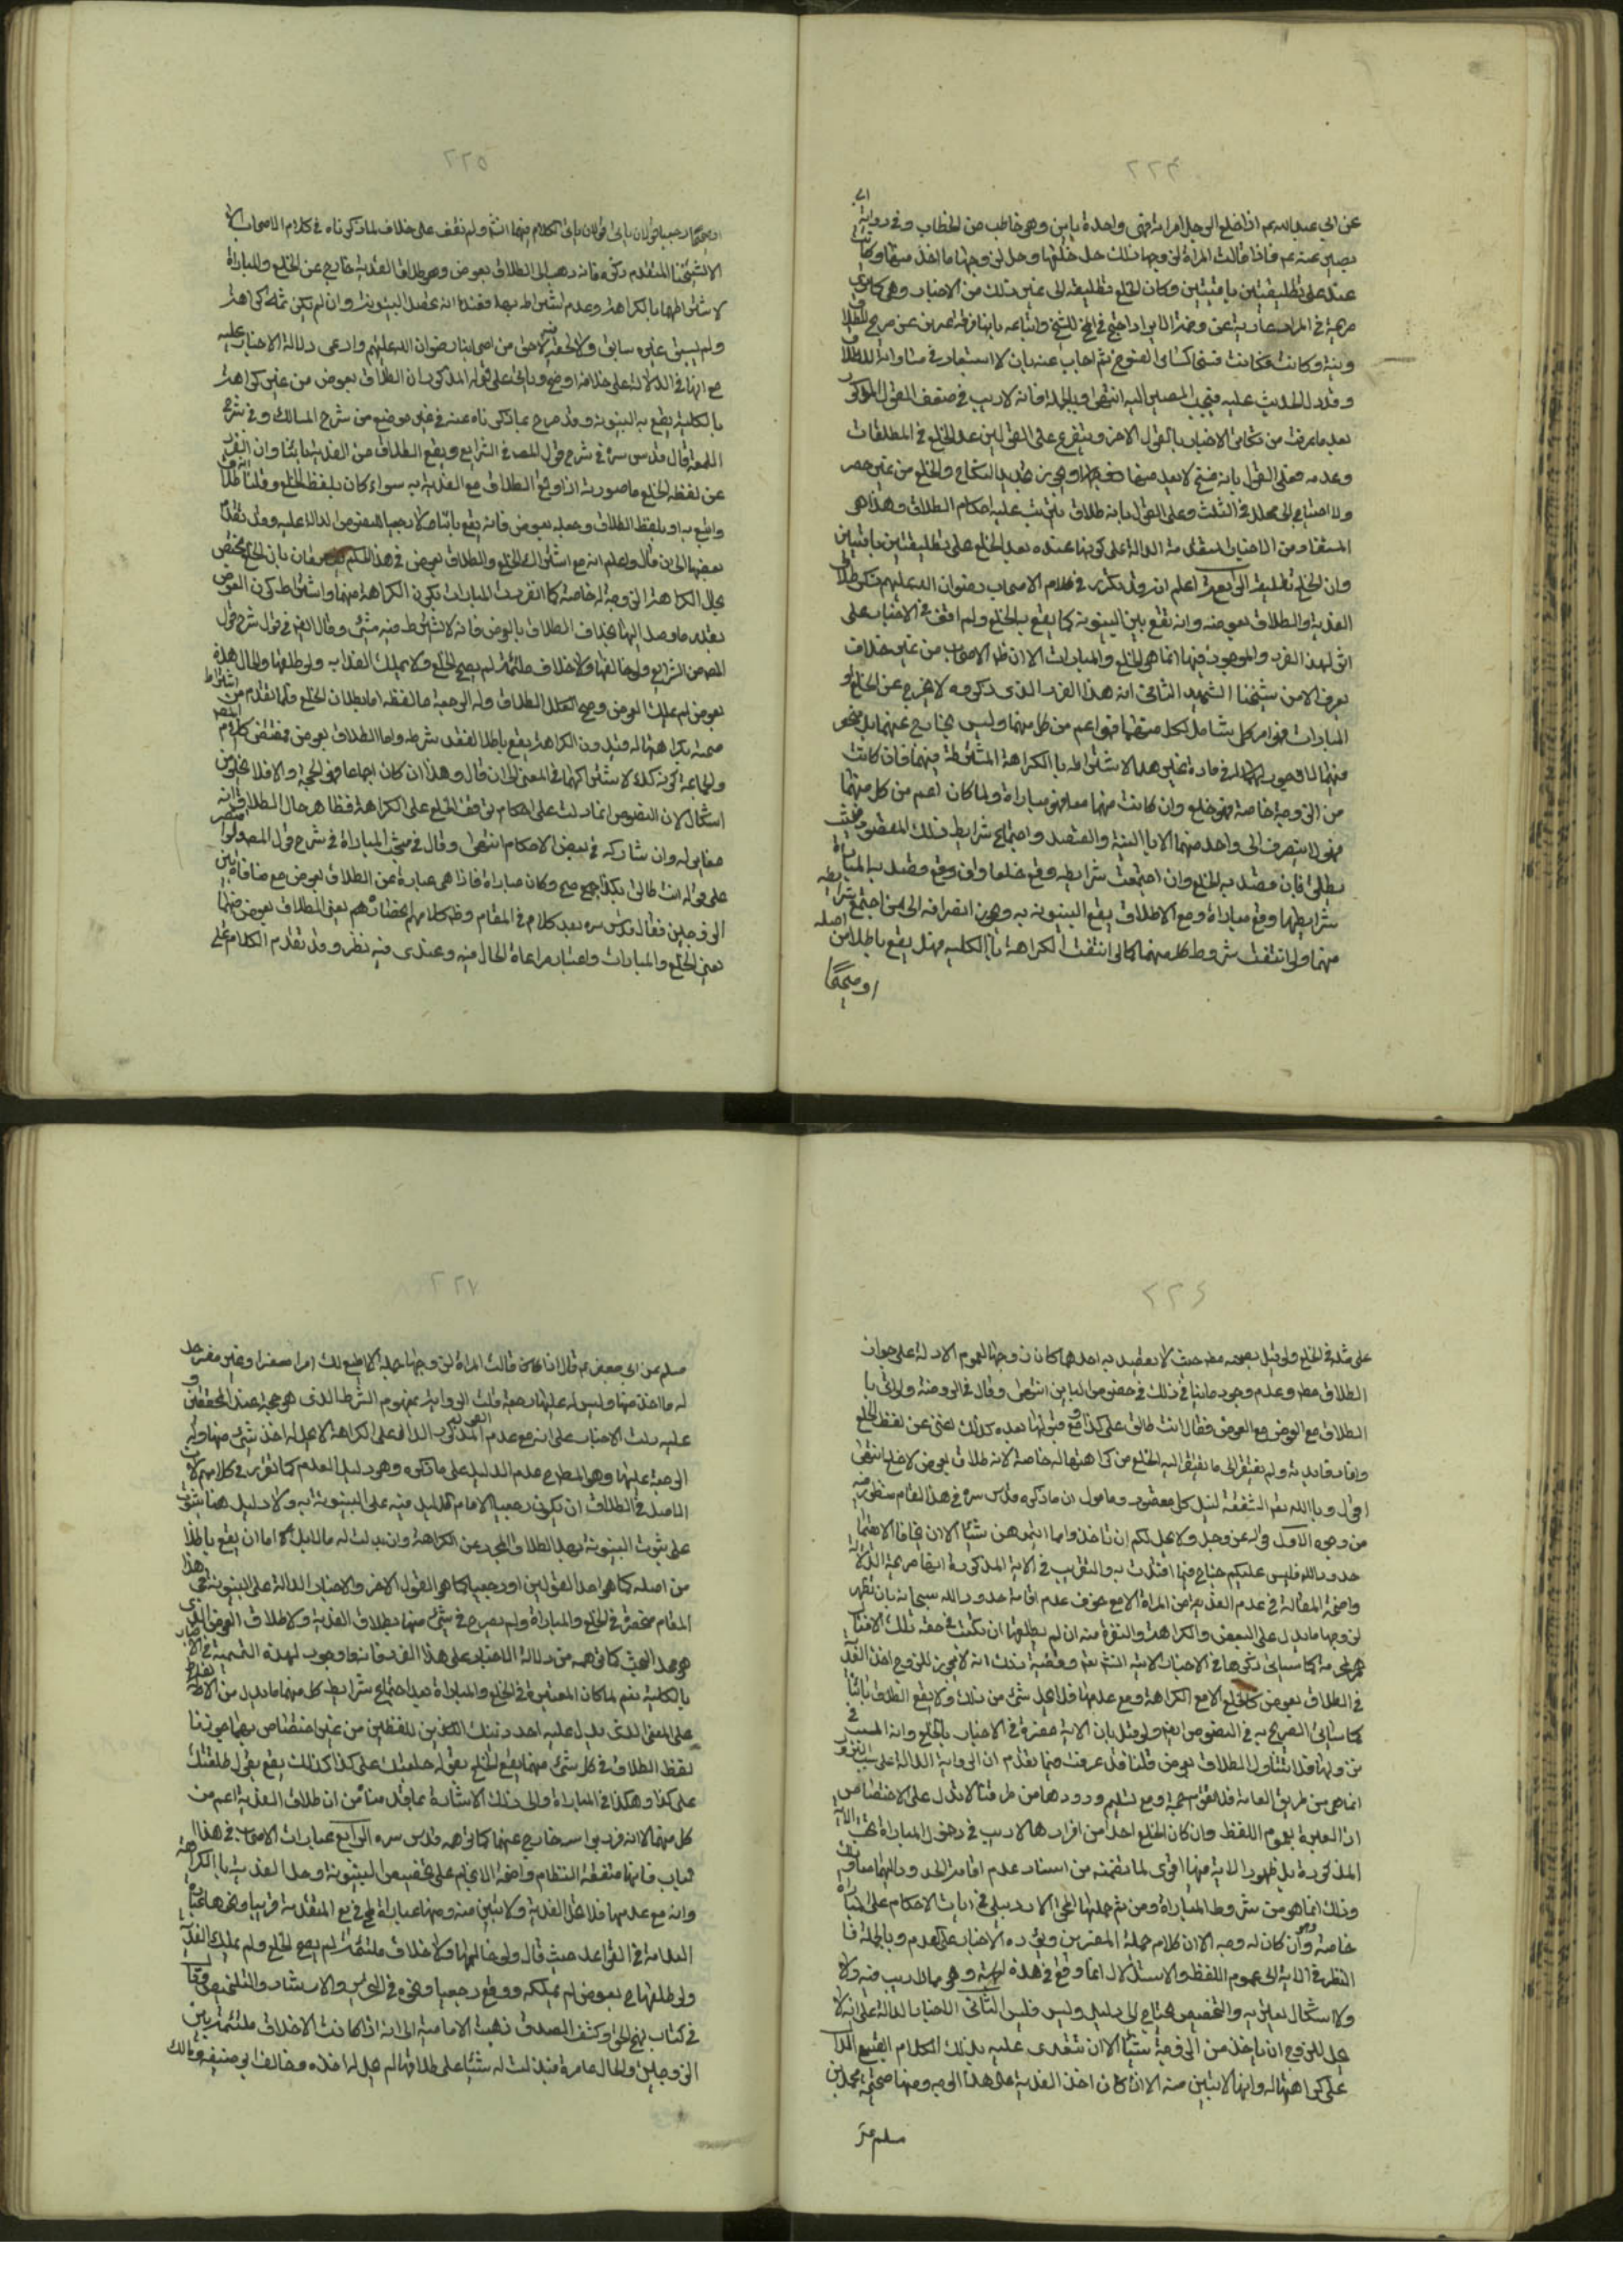 ٢٢٤
عن ابي عبد الله ع اذا خلع الرجل امراته فهي واحدة باين وهو خاطب من الخطاب وفي رواية ابي
بصير عنه ع فاذا قالت المراة لزوجها ذلك حل خلعها وحل لزوجها ما اخذ منها وكانت
عنده على تطليقتين باقيتين وكان الخلع تطليقة الى غير ذلك من الاخبار وهي كما ترى
وبنية وكانت فسخا كساير الفسوخ ثم اجاب عنه بان لا استبعاد في مساواته للطلاق
وقد دل الحديث عليه فيجب المصير اليه انتهى وبالجملة فانه لا ريب في ضعف القول المذكور
بعد ما عرفت من تكاثر الاخبار بالقول الاخر ويتفرع على القولين عد الخلع في المطلقات
وعدمه فعلى القول بانه فسخ لا يعد منها ويجوز تجديد النكاح والخلع من غير حصر
ولا احتياج الى محلل في الثلث وعلى القول بانه طلاق يترتب عليه احكام الطلاق وهذا هو
المستفاد من الاخبار المتقدمة الدالة على كونها عنده بعد الخلع على تطليقتين باقيتين
وان الخلع تطليقة الرابعة اعلم انه قد تكرر في كلام الاصحاب رضوان الله عليهم ذكر طلاق
الفدية والطلاق بعوض وانه تقع بين البينونة كما يقع بالخلع ولم اقف في الاخبار على
اثر لهذا الفرد والموجود فيها انما هو الخلع والمبارات الا ان ظاهر الاصحاب من غير خلاف
يعرف الا من شيخنا الشهيد الثاني ان هذا الفرد الذي ذكروه لا يخرج عن الخلع او
المبارات فهو امر كلي شامل لكل منهما فهو اعم من كل منهما وليس بخارج عنهما بل منحصر
فيهما لا وجود لهما في مادة غيرهما لاشتراطه بالكراهة المشترطة فيهما فان كانت
من الزوجة خاصة فهو خلع وان كانت منهما معا فهو مباراة ولما كان اعم من كل منهما
فهو لا ينصرف الى واحد منهما الا بالنية والقصد واجتماع شرايط ذلك المقصود فحيث
يطلق فان قصد به الخلع وان اجتمعت شرايطه وقع خلعا وان وقع وقصد به المباراة
شرايطها وقع مباراة ومع الاطلاق يقع البينونة به ويجوز انصرافه الى من اجتمع شرايطه
منهما ولو انتفت شروط كل منهما كما لو انتفت الكراهة بالكلية فهل يقع باطلا من اصله
او صحيحا
٢٢٥
او صحيحا رجعيا قولان ياتي الكلام فيهما انشاء ولم نقف على خلاف لما ذكرناه في كلام الاصحاب الا
الا لشيخنا المتقدم ذكره فانه ذهب الى الطلاق بعوض وهو طلاق الفدية خارج عن الخلع والمباراة
لاشتراطهما بالكراهة وعدم اشتراطه بها فعنده انه يحصل البينونة وان لم يكن ثمة كراهة
ولم يسبق غيره سابق ولا لحقه لاحق من اصحابنا رضوان الله عليهم وادعى دلالة الاخبار عليه
مع انها في الدلالة على خلافه اوضح وبنى على قوله المذكور ان الطلاق بعوض من غير كراهة
بالكلية يقع به البينونة وقد صرح بما ذكرناه عنه في غير موضع من شرح المسالك وفي شرح
اللمعة قال قدس سره في شرح قول المص في الشرايع ويقع الطلاق من الفدية باينا وان انفرد
عن لفظ الخلع ما صورته اذا وقع الطلاق مع الفدية به سواء كان بلفظ الخلع وقلنا انه طلاق
واتبع به او بلفظ الطلاق وجعله بعوض فانه يقع باينا لا رجعيا للنصوص الدالة عليه وقد تقدم
بعضها الى ان قال واعلم انه مع اشتراك الخلع والطلاق بعوض في هذا الحكم يفترقان بان الخلع مختص
بحال الكراهة الزوجة له خاصة كما انفردت المبارات بكون الكراهة منهما واشتراط كون العوض
بقدر ما وصل اليها بخلاف الطلاق بالعوض فانه لا يشترط فيه شيء وقال ايضا في قول شرح قول
المص من الشرايع ولو خالعها والاخلاق ملتئمة لم يصح الخلع ولا يملك الفدية ولو طلقها والحال هذه
بعوض لم يملك العوض وصح الطلاق وله الرجعة ما لفظه اما بطلان الخلع فلما تقدم من اشتراط
صحته بكراهتها له فبدون الكراهة يقع باطلا لفقد شرطه واما الطلاق بعوض فمقتضى كلام المص
والجماعة كونه كذلك لاشتراكهما في المعنى الى ان قال وهذا ان كان اجماعا فهو الحجة والا فلا يخلو من
اشكال لان النصوص انما دلت على احكام توقف الخلع على الكراهة فظاهر حال الطلاق انه
مغاير له وان شاركه في بعض الاحكام انتهى وقال في مبحث المباراة في شرح قول المص ولو اقتصر
على قوله انت طالق بكذا صح وكان مباراة فاذا هي عبارة عن الطلاق بعوض مع منافاة بين
الزوجين فقال قدس سره بعد كلام في المقام وظاهر كلامهم انحصاره يعني الطلاق بعوض فيهما
يعني الخلع والمبارات واعتبار مراعاة الحال فيه وعندي فيه نظر وقد تقدم الكلام على
٢٢٦
على مثله في الخلع ولو قيل بصحته مطلقا حيث لا يقصد به احدهما كان وجها لعموم الادلة على جواز
الطلاق مطلقا وعدم وجود ما ينافي ذلك في خصوص الباين انتهى وقال في الروضة ولو اتى با
الطلاق مع العوض فقال انت طالق على كذا مع قبولها بعده كذلك اغنى عن لفظ الخلع
وافاد فايدته ولم يفتقر الى ما يفتقر اليه الخلع من كراهتها له خاصة لانه طلاق بعوض لا خلع انتهى
اقول وبالله الثقة لنيل كل مقصود ومامول ان ما ذكره قدس سره في هذا المقام منظور فيه
من وجوه الاول قوله عز وجل ولا يحل لكم ان تاخذوا مما اتيتموهن شيئا الا ان يخافا الا يقيما
حدود الله فليس عليكم جناح فيما افتدت به والتقريب في الاية المذكورة انها صريحة الدلالة
واضحة المقالة في عدم الفدية من المراة الا مع خوف عدم اقامة حدود الله سبحانه بان تظهر
لزوجها ما يدل على البغض والكراهة والنفرة منه
في الطلاق بعوض كالخلع الا مع الكراهة ومع عدمها فلا يحل شيء من ذلك ولا يقع الطلاق باينا
كما سياتي التصريح به في النصوص ايضا ولو قيل بان الاية مفسرة في الاخبار بالخلع وانه السبب في
نزولها فلا يتناول الطلاق بعوض قلنا قد عرفت فيما تقدم ان الرواية الدالة على سبب النزول
انما هي من طريق العامة فلا تقوم حجة ومع تسليم ورودها من طرقنا لا تدل على الاختصاص
اذ العبرة بعموم اللفظ وان كان الخلع احدا من افرادها لا ريب في دخول المباراة تحت الاية
المذكورة بل ظهور الاية فيها اقوى لما تضمنته من اسناد عدم اقامة الحدود اليهما معا
وذلك انما هو من شروط المباراة ومن ثم حملها المحقق الاردبيلي في ايات الاحكام على المباراة
خاصة وان كان له وجه الا ان كلام جملة المفسرين وفي ترده الاخبار على العموم وبالجملة فا
النظر في الاية الى عموم اللفظ والاستدلال انما وقع في هذه الجهة وهو مما لا ريب فيه ولا
ولا اشكال يعتريه والتخصيص يحتاج الى دليل وليس فليس الثاني الاخبار الدالة على انه لا
يحل للزوج ان ياخذ من الزوجة شيئا الا ان تتعدى عليه بذلك الكلام القبيح الدال
على كراهتها له وانها لا تبين منه الا ان كان اخذ الفدية على هذا الوجه ومنها صحيحة محمد بن
مسلم عن
٢٢٧
مسلم عن ابي جعفر ع قال اذا قالت المراة لزوجها جملة لا اطيع لك امرا مفسرا وغير مفسر حل
له ما اخذ منها وليس له عليها رجعة قلت الرواية بمفهوم الشرط الذي هو حجة عند المحققين و
عليه دلت الاخبار على انه مع عدم القول المذكور الدال على الكراهة لا يحل له اخذ شيء منها وله
الرجعة عليها وهو المطلوب مع عدم الدليل على ما ذكره وهو دليل العدم كما تقرر في كلامهم لان
الاصل في الطلاق ان يكون رجعيا الا ما قام الدليل فيه على البينونة به ولا دليل هنا
على ثبوت البينونة بهذا الطلاق المجرد عن الكراهة وان بذلت له مالا بل اما ان يقع باطلا
من اصله كما هو احد القولين او رجعيا كما هو القول الاخر والاخبار الدالة على البينونة في هذا
المقام منحصرة في الخلع والمباراة ولم يصرح في شيء منها بطلاق الفدية ولا طلاق العوض الذي
هو محل البحث كما توهمه من دلالة الاخبار على هذا الفرد فانه لا وجود لهذه التسمية في الاخبار
بالكلية نعم لما كان المعتبر في الخلع والمباراة بعد اجتماع شرايط كل منهما ما يدل من الالفاظ
على المعنى الذي يدل عليه احد ذينك اللفظين من غير اختصاص بهما جوزنا
لفظ الطلاق في كل شيء منهما يقع الخلع بقوله خلعتك على كذا كذلك يقع بقول طلقتك
على كذا وهكذا في المباراة والى ذلك الاشارة بما قدمناه من ان طلاق الفدية اعم من
كل منهما لا انه فرد براسه خارج عنهما كما توهمه قدس سره الرابع عبارات الاصحاب في هذا ا
لباب فانها متفقة النظام واضحة الانسجام على تخصيص البينونة وحل الفدية بالكراهة
وانه مع عدمها فلا تحل الفدية ولا تبين منه ومنها عبارة المحقق في يع المتقدمة قريبا ونحوها عبارة
العلامة في القواعد حيث قال ولو خالعها والاخلاق ملتئمة لم يصح الخلع ولم يملك الفدية
ولو طلقها ح بعوض لم يملكه ووقع رجعيا ونحوه في التحرير والارشاد والتلخيص وقال
في كتاب نهج الحق وكشف الصدق ذهبت الامامية الى انه اذا كانت الاخلاق ملتئمة بين
الزوجين والحال عامرة فبذلت له شيئا على طلاقها لم يحل له اخذه وخالف ابو حنيفة ومالك